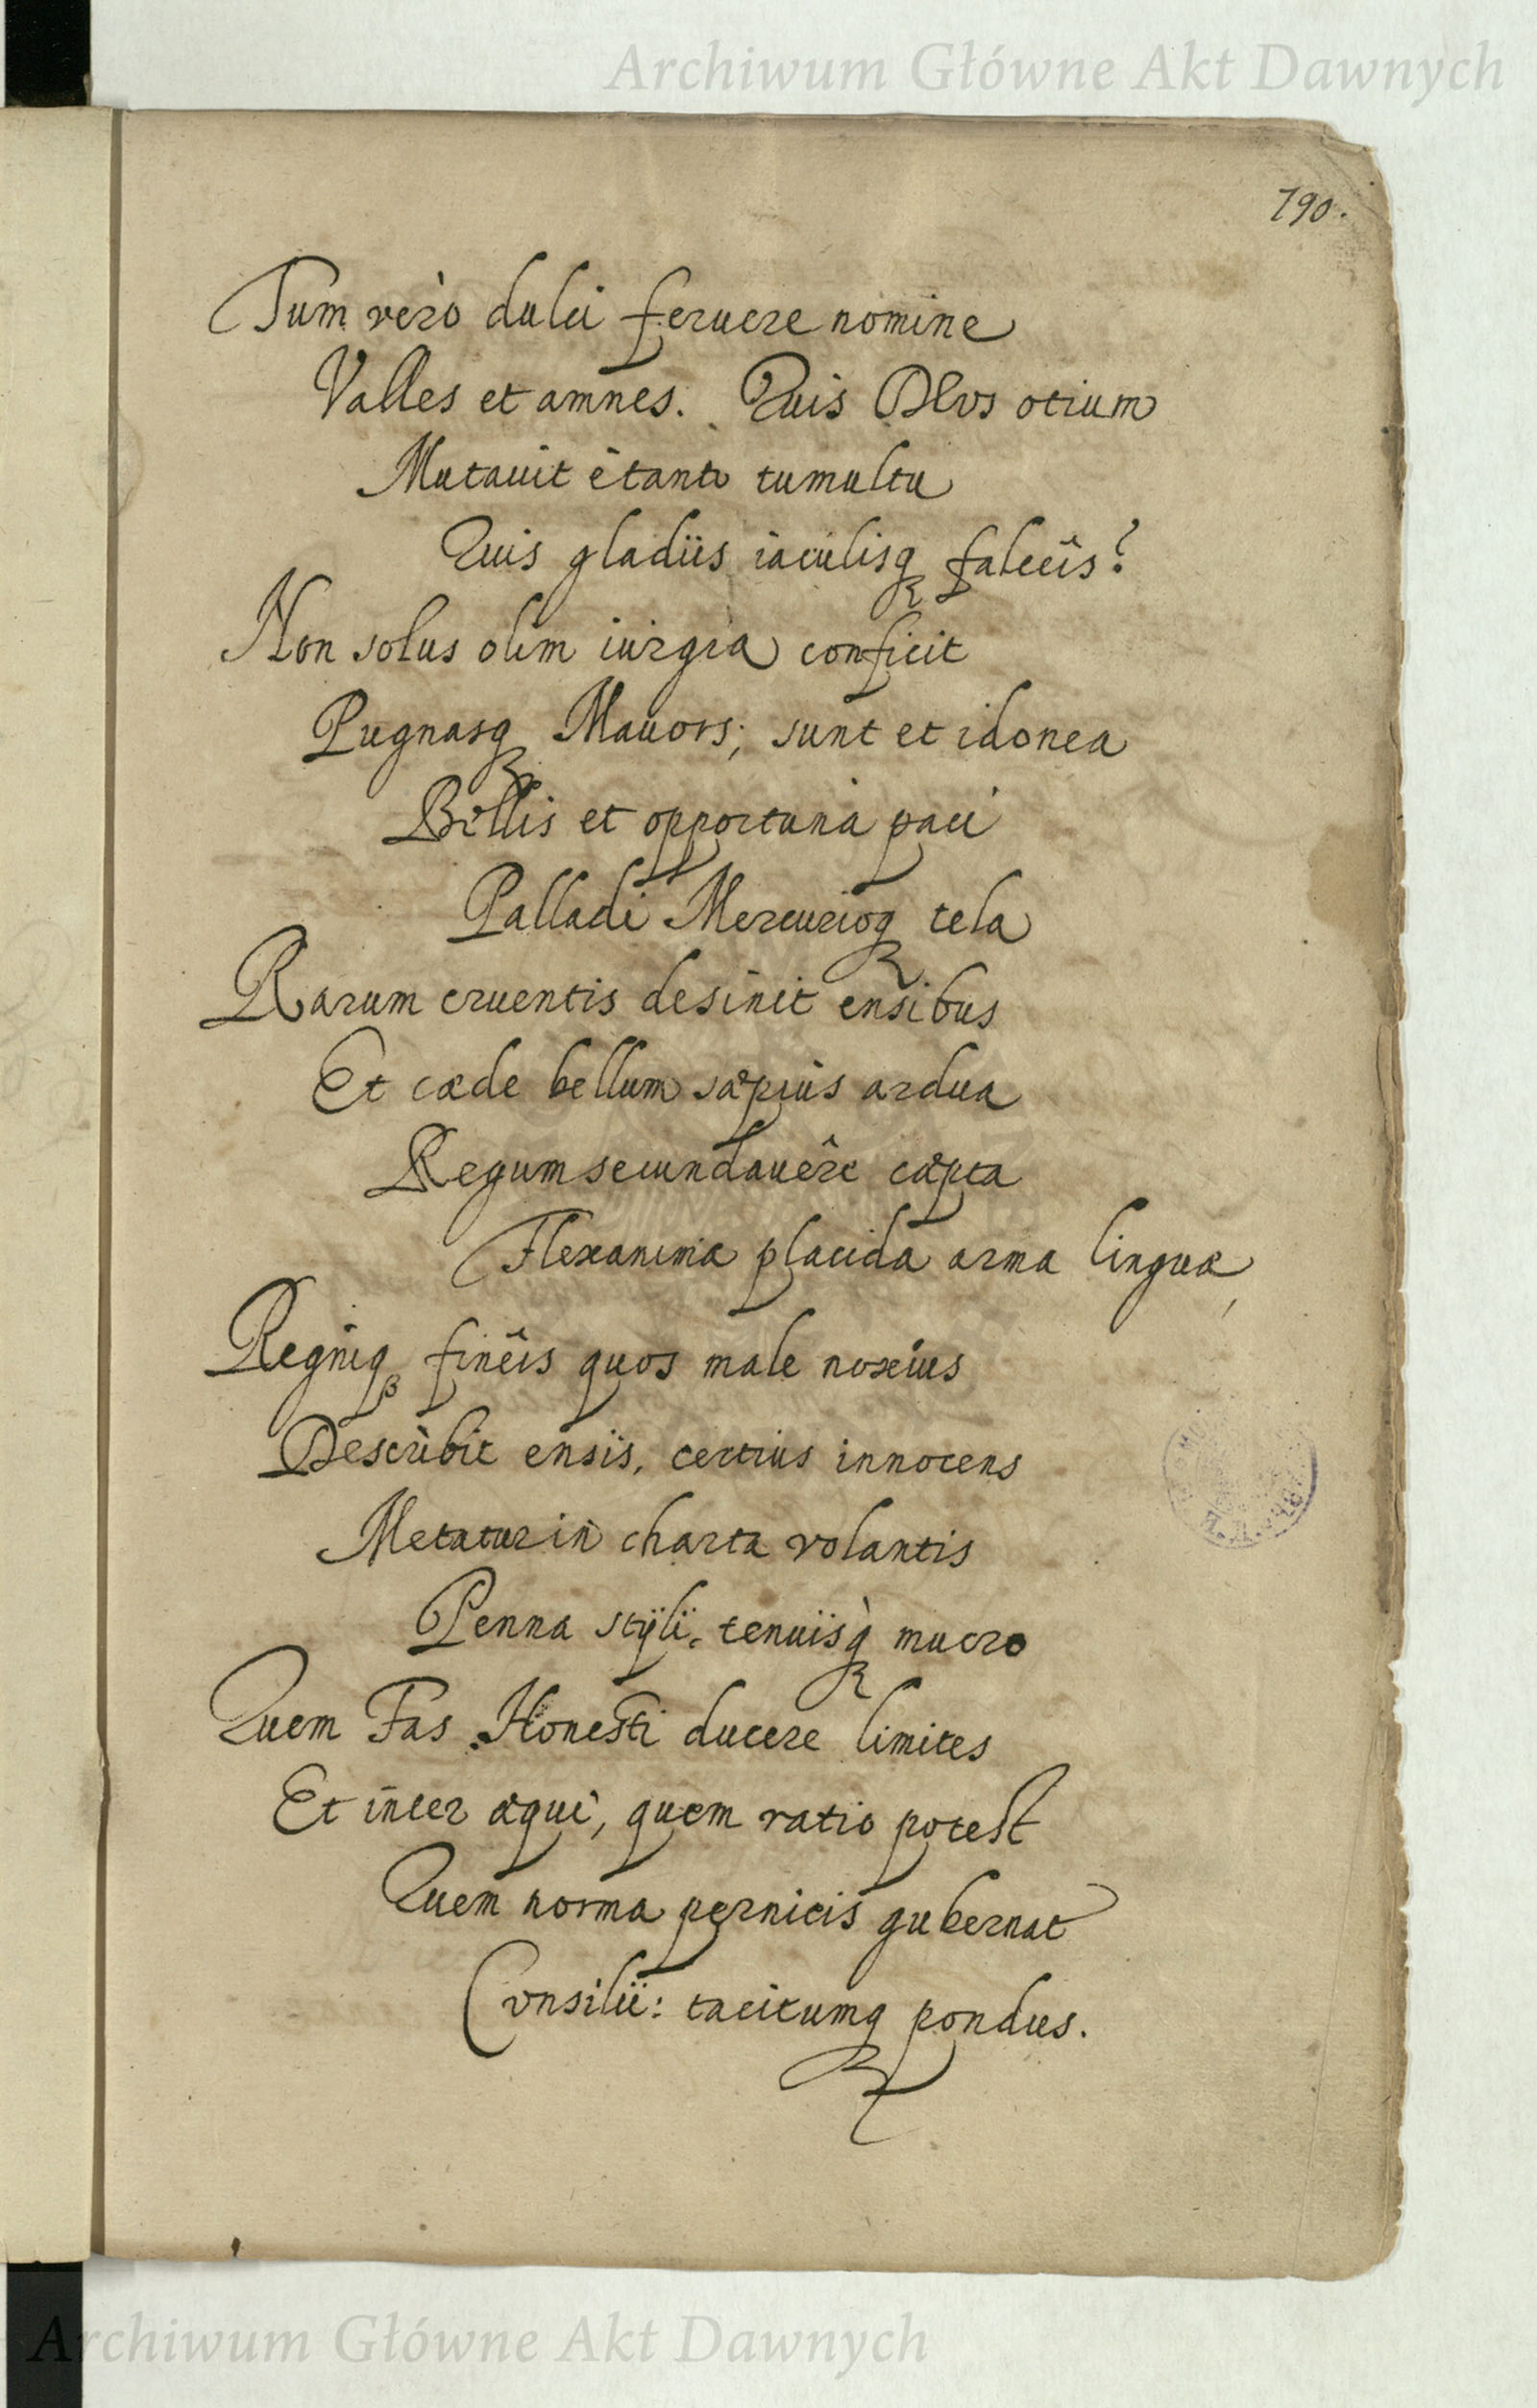 Archiwum Główne Akt Dawnych
190.
Tum verò dulci feruere nomine
Valles et amnes. Quis DEVS otium
Mutauit è tanto tumultu
Quis gladiis iaculisq falceîs?
Non solus olim iurgia conficit
Pugnasq Mauors; sunt et idonea
Bellis et opportuna paci
Palladi Mercurioq tela
Rarum cruentis desinit ensibus
Et cæde bellum sæpius ardua
Regum secundauêre cæpta
Flexanima placida arma linguæ,
Regniq fineîs quos male noxius
Describit ensis, certius innocens
Metatur in charta volantis
Penna stÿli, tenuisq mucro
Quem Fas Honesti ducere limites
Et inter æqui, quem ratio potest
Quem norma pernicis gubernat
Consilii: tacitumq pondus.
Archiwum Główne Akt Dawnych